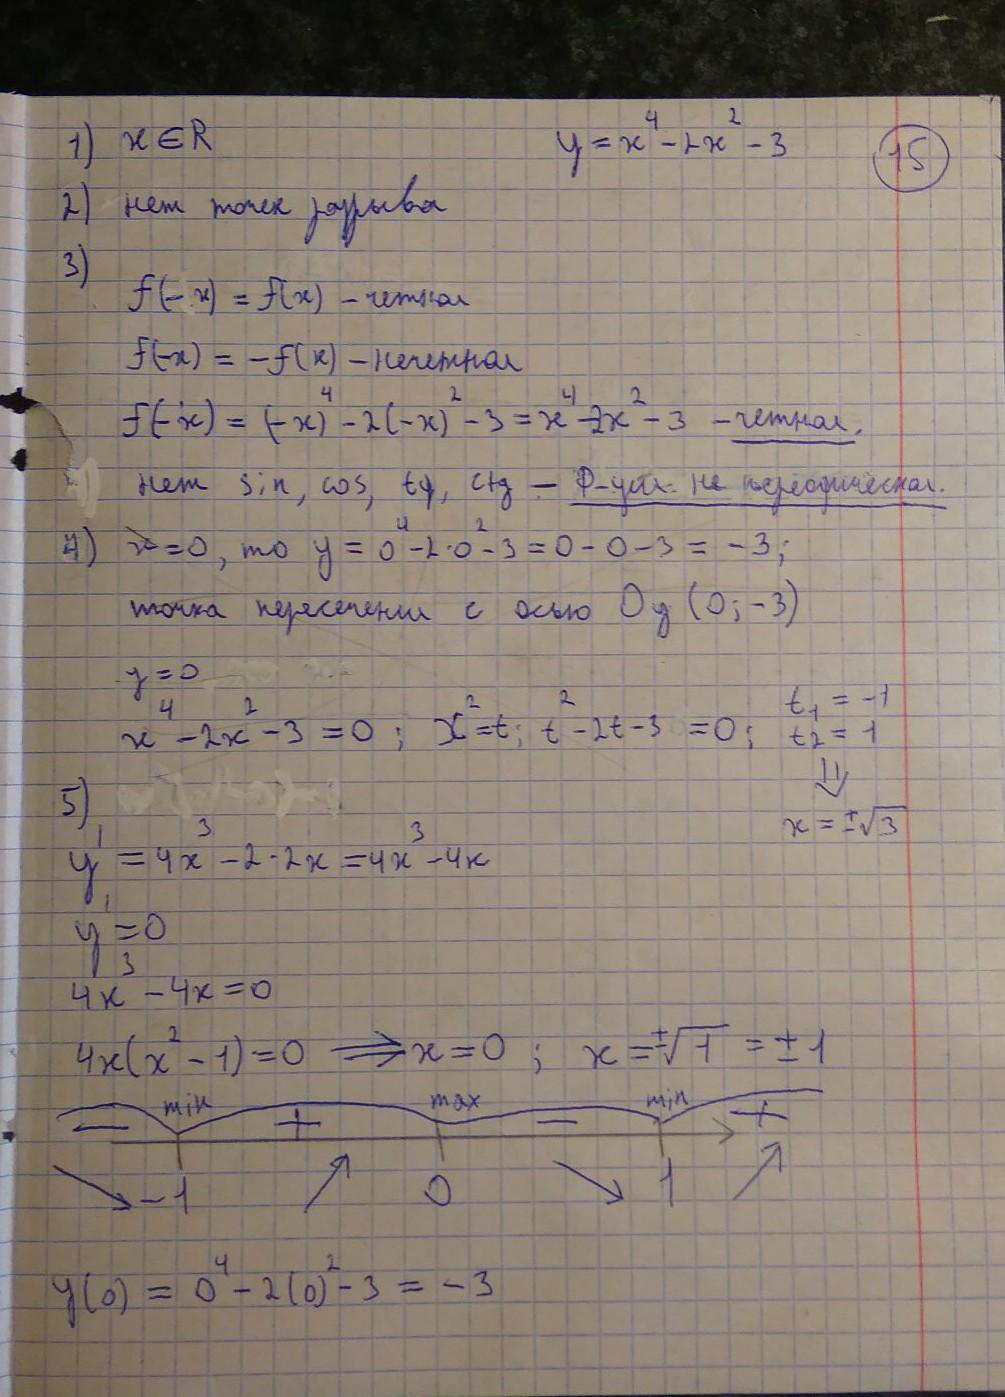 1) x ∈ R y = x⁴ - 2x² - 3 15
2) нет точек разрыва
3)
f(-x) = f(x) - четная
f(-x) = -f(x) - нечетная
f(-x) = (-x)⁴ - 2(-x)² - 3 = x⁴ - 2x² - 3 - четная.
Нет sin, cos, tg, ctg - Ф-ция не периодическая.
4) x = 0, то y = 0⁴ - 2·0² - 3 = 0 - 0 - 3 = -3;
точка пересечения с осью Oy (0; -3)
y = 0
x⁴ - 2x² - 3 = 0; x² = t; t² - 2t - 3 = 0; t₁ = -1
t₂ = 1
⇓
x = ±√3
5)
y' = 4x³ - 2·2x = 4x³ - 4x
y' = 0
4x³ - 4x = 0
4x(x² - 1) = 0 ⟹ x = 0; x = ±√1 = ±1
min max min
- + - +
-1 0 1
y(0) = 0⁴ - 2(0)² - 3 = -3